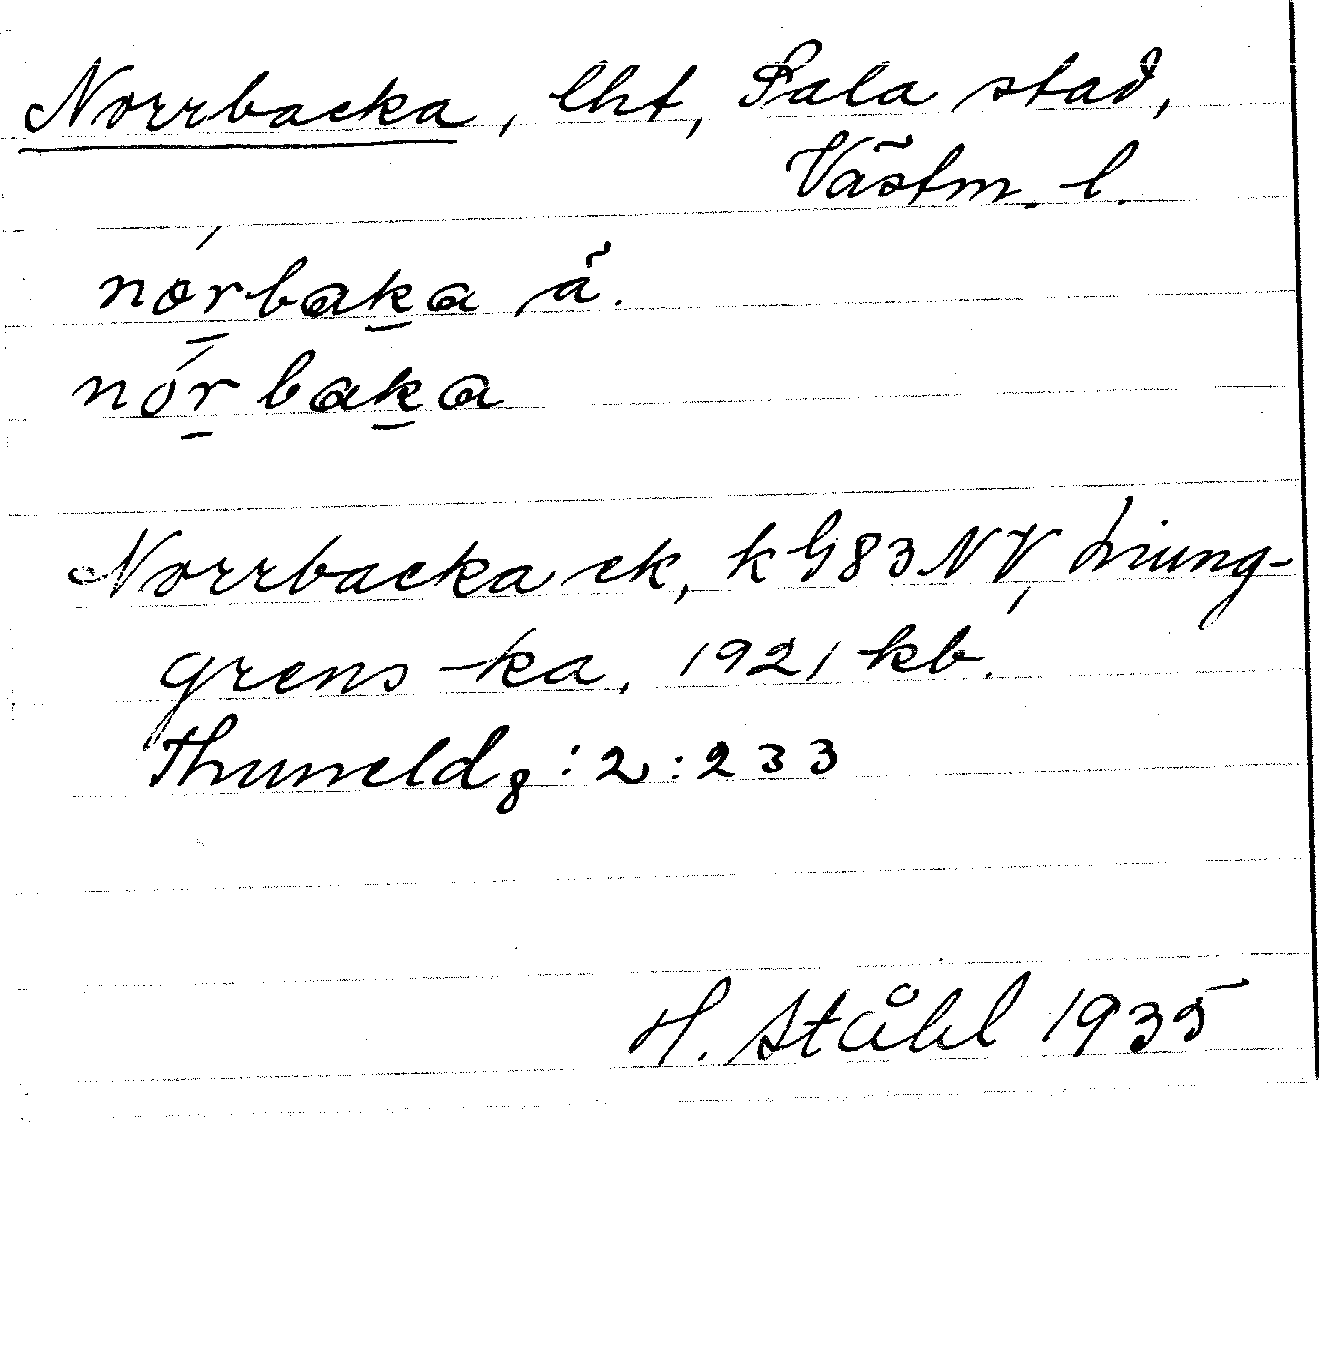 Norrbacka, lht, Sala stad,
Västm. l.
nórbaka ä.
nórbaka
Norrbacka ek, k G83NV, Liung-
grens ka, 1921 kb.
: 2 : 233
H. Ståhl 1935